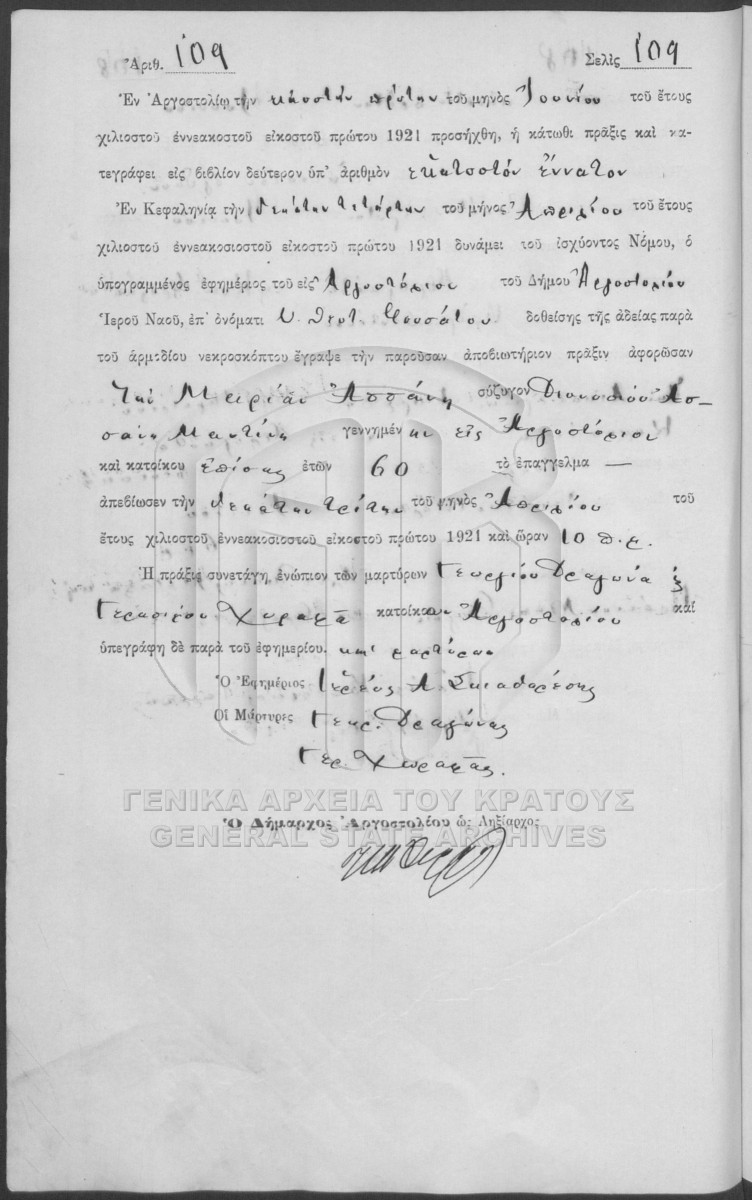 Ἀριθ. 109 Σελὶς 109
Ἐν Ἀργοστολίῳ τὴν εἰκοστὴν πρώτην τοῦ μηνὸς Ἰουνίου τοῦ ἔτους
χιλιοστοῦ ἐννεακοστοῦ εἰκοστοῦ πρώτου 1921 προσήχθη, ἡ κάτωθι πρᾶξις καὶ κα-
τεγράφει εἰς βιβλίον δεύτερον ὑπ' ἀριθμὸν ἑκατοστόν ἔννατον
Ἐν Κεφαληνίᾳ τὴν δεκάτην τετάρτην τοῦ μῆνος Ἀπριλίου τοῦ ἔτους
χιλιοστοῦ ἐννεακοσιοστοῦ εἰκοστοῦ πρώτου 1921 δυνάμει τοῦ ἰσχύοντος Νόμου, ὁ
ὑπογραμμένος ἐφημέριος τοῦ εἰς Ἀργοστόλιον τοῦ Δήμου Ἀργοστολίου
Ἱεροῦ Ναοῦ, ἐπ' ὀνόματι Υ. Θεοτ. δοθείσης τῆς ἀδείας παρὰ
τοῦ ἁρμοδίου νεκροσκόπτου ἔγραψε τὴν παροῦσαν ἀποβιωτήριον πρᾶξιν ἀφορῶσαν
τὴν Μαρίαν Ἀσπάνη σύζυγον Διονυσίου Ἀσ-
πάνη Μαντίνη γεννημένην εἰς Ἀργοστόλιον
καὶ κατοίκου ἐπίσης ἐτῶν 60 τὸ ἐπάγγελμα —
ἀπεβίωσεν τὴν δεκάτην τρίτην τοῦ μηνὸς Ἀπριλίου τοῦ
ἔτους χιλιοστοῦ ἐννεακοσιοστοῦ εἰκοστοῦ πρώτου 1921 καὶ ὥραν 10 π.μ.
Ἡ πρᾶξις συνετάγη ἐνώπιον τῶν μαρτύρων Γεωργίου Δραγώνα &
Γερασίμου Χωραφᾶ κατοίκων Ἀργοστολίου καὶ
ὑπεγράφη δὲ παρὰ τοῦ ἐφημερίου. καὶ μαρτύρων
Ὁ Ἐφημέριος Ἱερεὺς Α. Σκιαδαρέσης
Οἱ Μάρτυρες Γεωρ. Δραγώνας
Γερ. Χωραφᾶς.
ΓΕΝΙΚΑ ΑΡΧΕΙΑ ΤΟΥ ΚΡΑΤΟΥΣ
Ὁ Δήμαρχος Ἀργοστολίου ὡς Ληξίαρχος
GENERAL STATE ARCHIVES